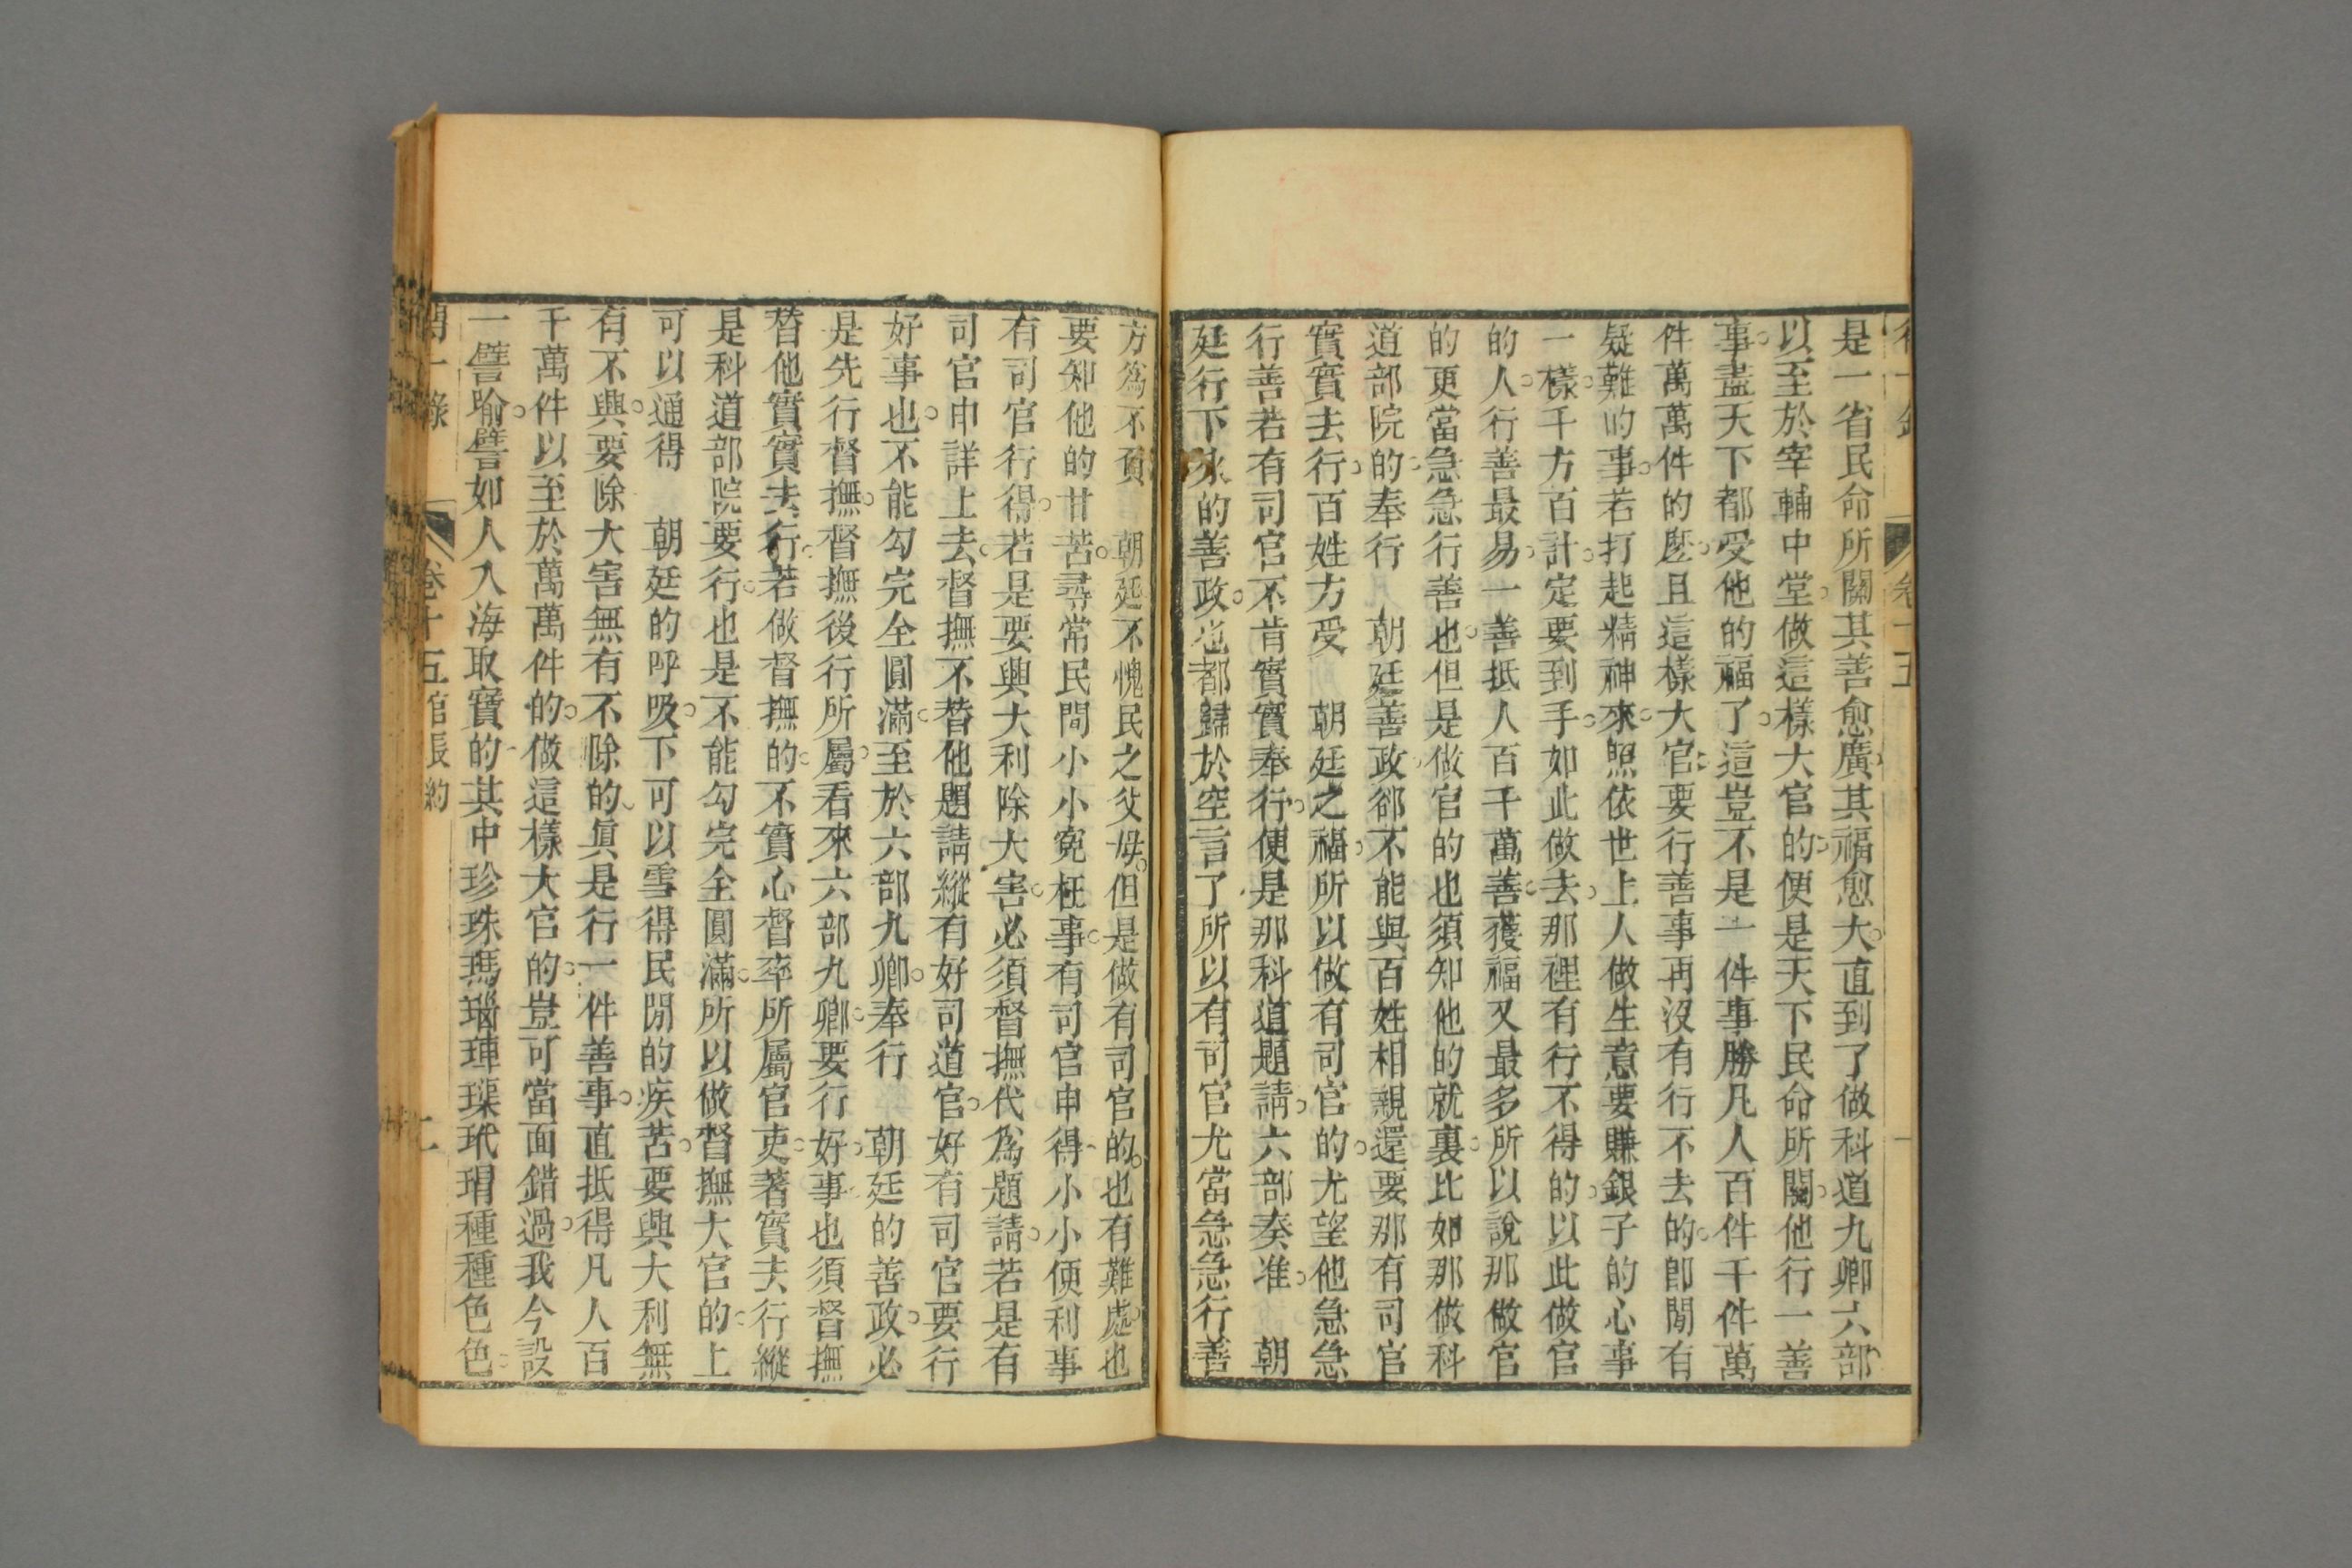 是一省民命所關其善愈廣其福愈大直到了做科道九卿六部
以至於宰輔中堂做這樣大官的便是天下民命所關他行一善
事盡天下都受他的福了這豈不是一件事勝凡人百件千件萬
件萬萬件的麽且這樣大官要行善事再沒有行不去的卽閒有
疑難的事若打起精神來照依世上人做生意要賺銀子的心事
一樣千方百計定要到手如此做去那裡有行不得的以此做官
的人行善最易一善抵人百千萬善獲福又最多所以說那做官
的更當急急行善也但是做官的也須知他的就裏比如那做科
道部院的奉行 朝廷善政郤不能與百姓相親還要那有司官
實實去行百姓方受 朝廷之福所以做有司官的尤望他急急
行善若有司官不肯實實奉行便是那科道題請六部奏准 朝
廷行下來的善政也都歸於空言了所以有司官尤當急急行善
方爲不負 朝廷不愧民之父母但是做有司官的也有難處也
要知他的甘苦尋常民間小小寃枉事有司官申得小小便利事
有司官行得若是要興大利除大害必須督撫代爲題請若是有
司官申詳上去督撫不替他題請縱有好司道官好有司官要行
好事也不能勾完全圓滿至於六部九卿奉行 朝廷的善政必
是先行督撫督撫後行所屬看來六部九卿要行好事也須督撫
替他實實去行若做督撫的不實心督率所屬官吏著實去行縱
是科道部院要行也是不能勾完全圓滿所以做督撫大官的上
可以通得 朝廷的呼吸下可以雪得民間的疾苦要興大利無
有不興要除大害無有不除的眞是行一件善事直抵得凡人百
千萬件以至於萬萬件的做這樣大官的豈可當面錯過我今設
一譬喻譬如人入海取寶的其中珍珠瑪瑙硨磲玳瑁種種色色
得一錄 卷十五官長約 二